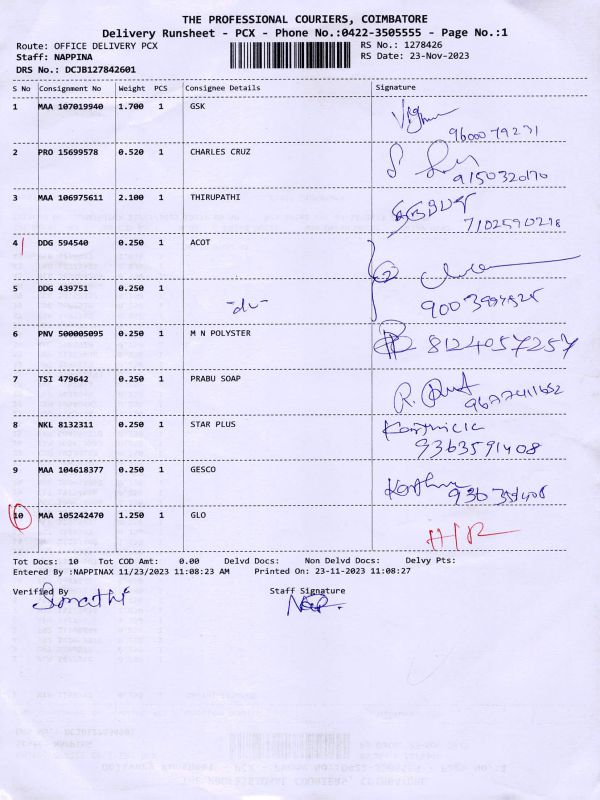 THE PROFESSIONAL COURIERS, COIMBATORE
Delivery Runsheet - PCX - Phone No.:0422-3505555 - Page No.:1
Route: OFFICE DELIVERY PCX RS No.: 1278426
Staff: NAPPINA RS Date: 23-Nov-2023
DRS No.: DCJB127842601
S No Consignment No Weight PCS Consignee Details Signature
1 MAA 107019940 1.700 1 GSK
9600079271
2 PRO 15699578 0.520 1 CHARLES CRUZ
9150320170
3 MAA 106975611 2.100 1 THIRUPATHI
7102590278
4 DDG 594540 0.250 1 ACOT
2
5 DDG 439751 0.250 1
-do-
6 PNV 500005095 0.250 1 M N POLYSTER 8124057257
7 TSI 479642 0.250 1 PRABU SOAP
9677411652
8 NKL 8132311 0.250 1 STAR PLUS Karthick
9363591408
9 MAA 104618377 0.250 1 GESCO
10 MAA 105242470 1.250 1 GLO
H/R
Tot Docs: 10 Tot COD Amt: 0.00 Delvd Docs: Non Delvd Docs: Delvy Pts:
Entered By :NAPPINAX 11/23/2023 11:08:23 AM Printed On: 23-11-2023 11:08:27
Verified By Staff Signature